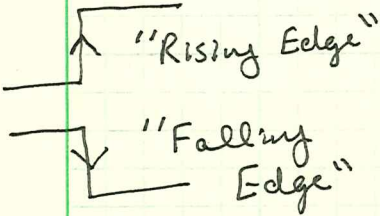 "Rising Edge"
"Falling
Edge"